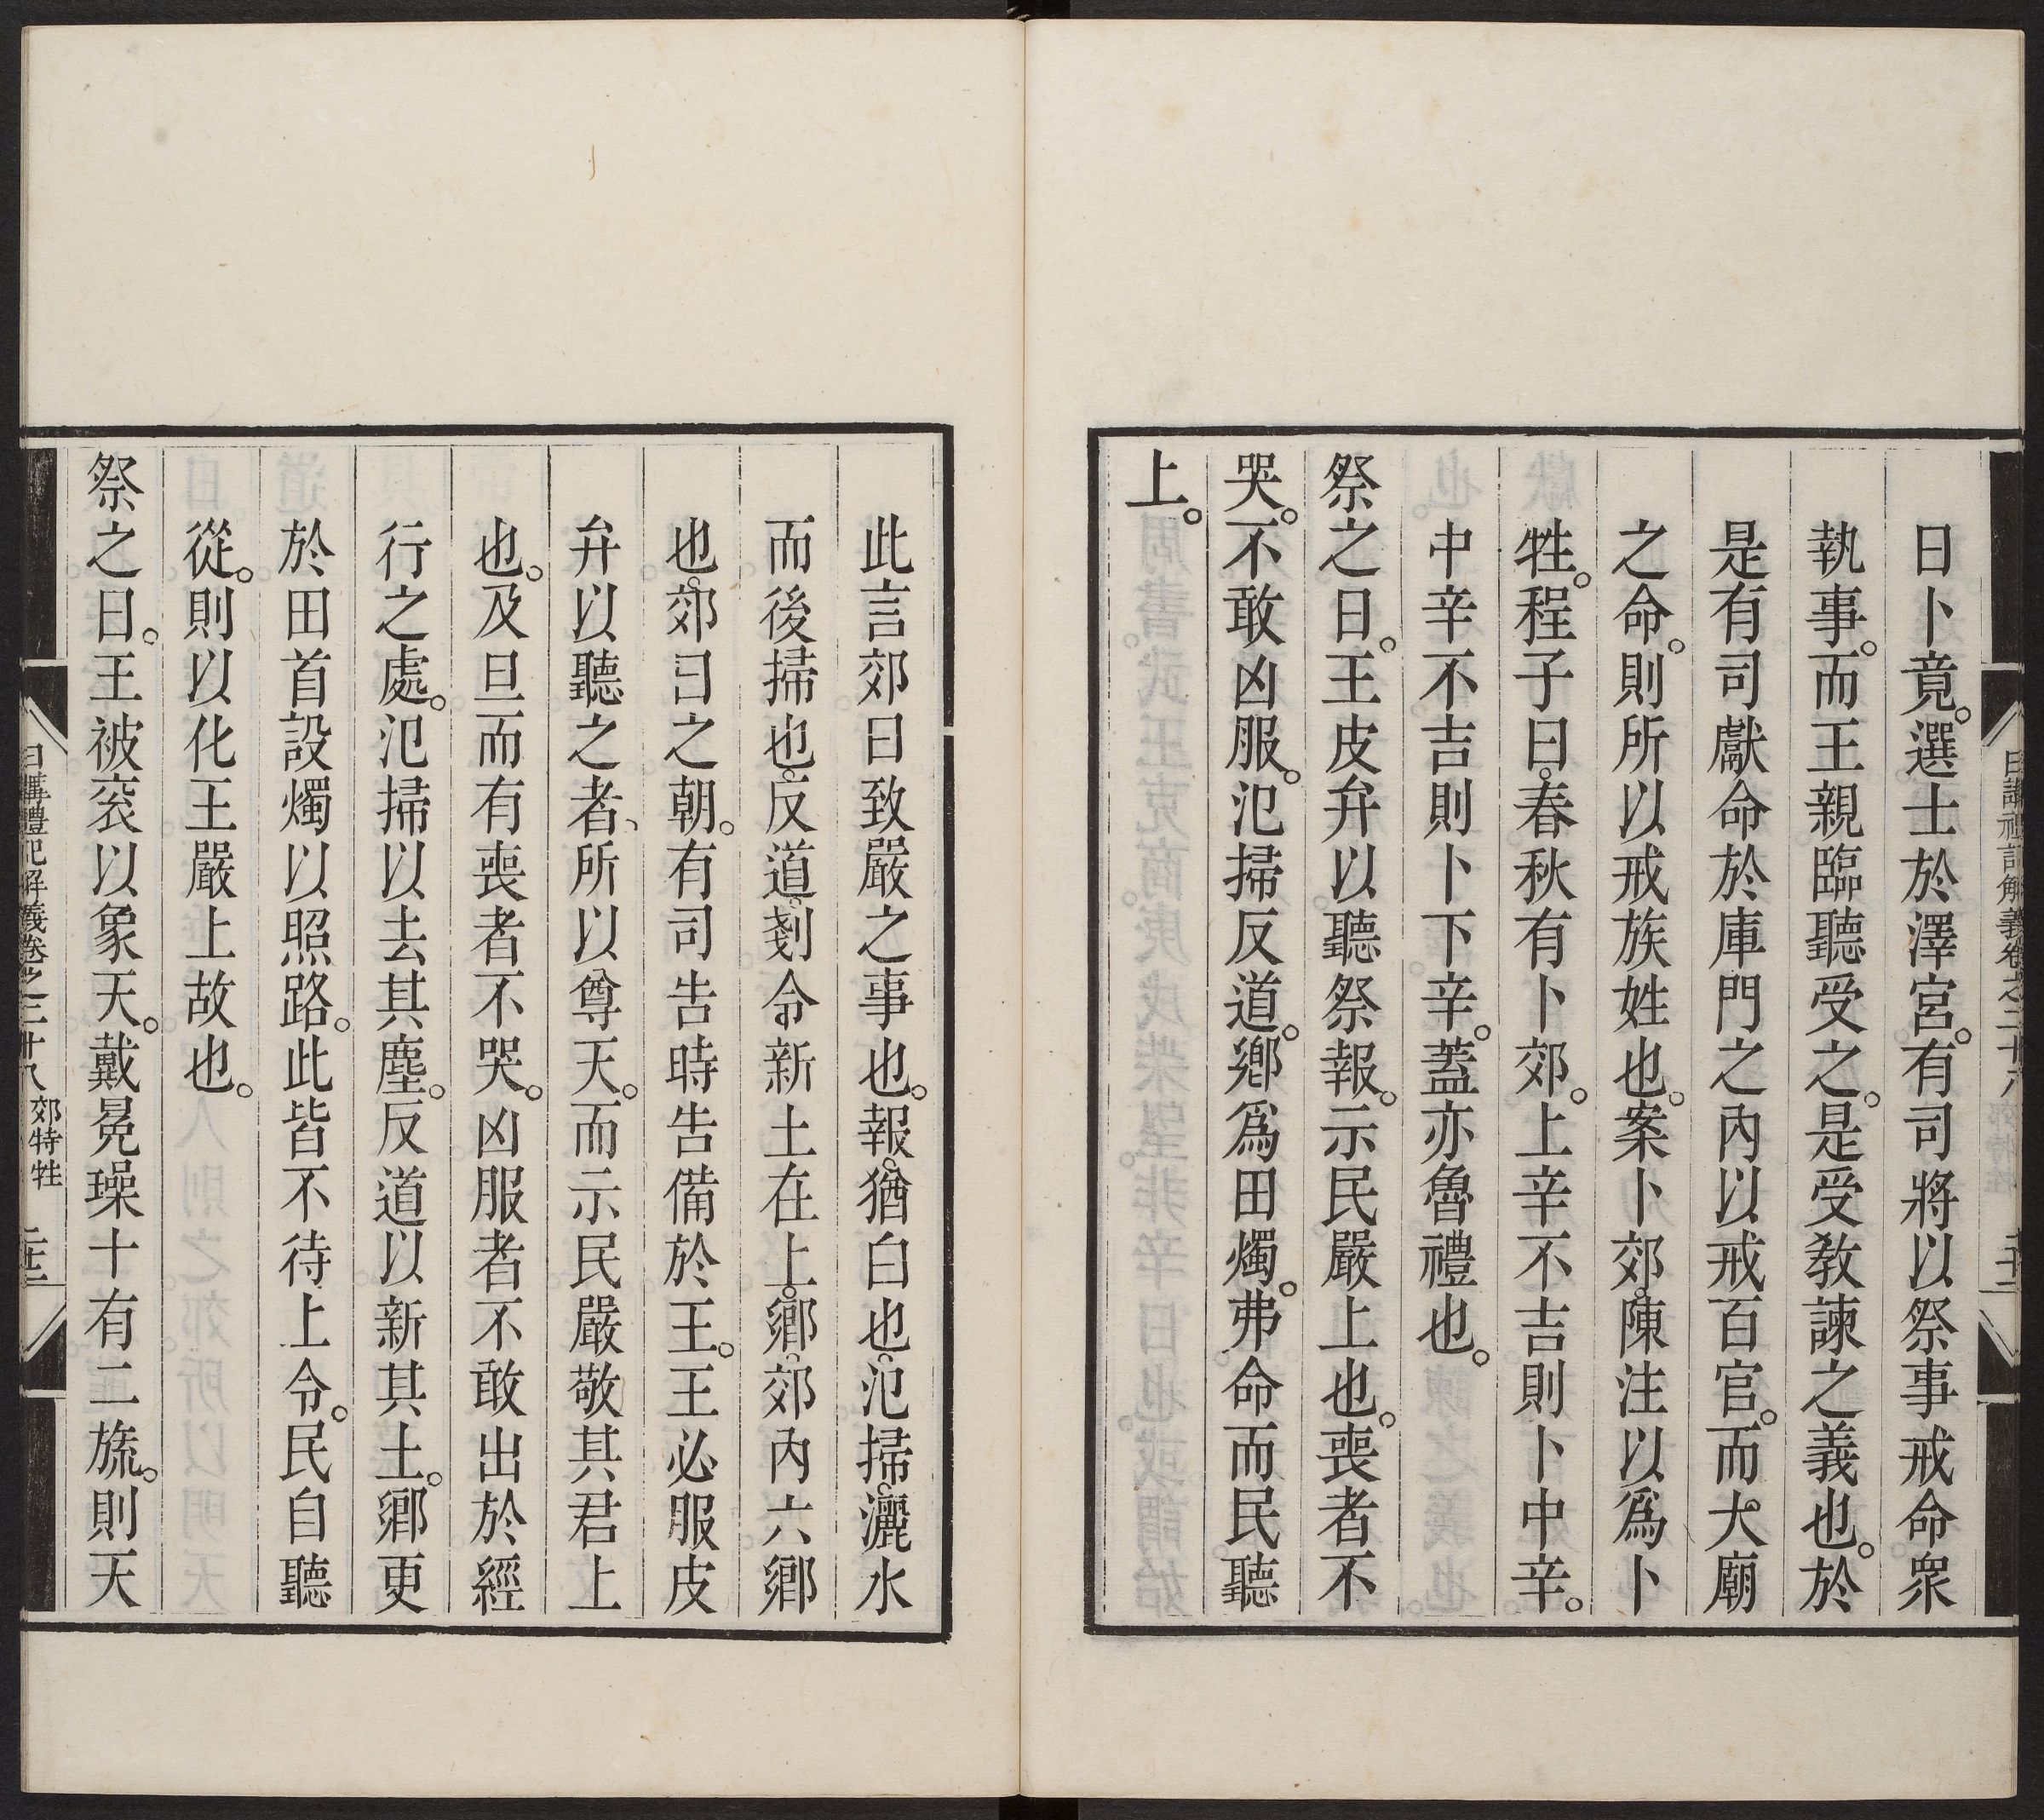 日卜竟。選士於澤宮。有司將以祭事戒命衆
執事。而王親臨聽受之。是受教諫之義也。於
是有司獻命於庫門之內以戒百官。而大廟
之命。則所以戒族姓也。案卜郊。陳注以爲卜
牲。程子曰。春秋有卜郊。上辛不吉則卜中辛。
中辛不吉則卜下辛。蓋亦魯禮也。
祭之日。王皮弁以聽祭報。示民嚴上也。喪者不
哭。不敢凶服。氾掃反道。鄉爲田燭。弗命而民聽
上。
此言郊日致嚴之事也。報。猶白也。氾掃。灑水
而後掃也。反道。剗令新土在上。鄉。郊內六鄉
也。郊日之朝。有司告時告備於王。王必服皮
弁以聽之者、所以尊天。而示民嚴敬其君上
也。及旦而有喪者不哭。凶服者不敢出於經
行之處。氾掃以去其塵。反道以新其土。鄉更
於田首設燭以照路。此皆不待上令。民自聽
從。則以化王嚴上故也。
祭之日。王被衮以象天。戴冕璪十有二旒。則天
日講禮記解義卷之二十八 郊特牲